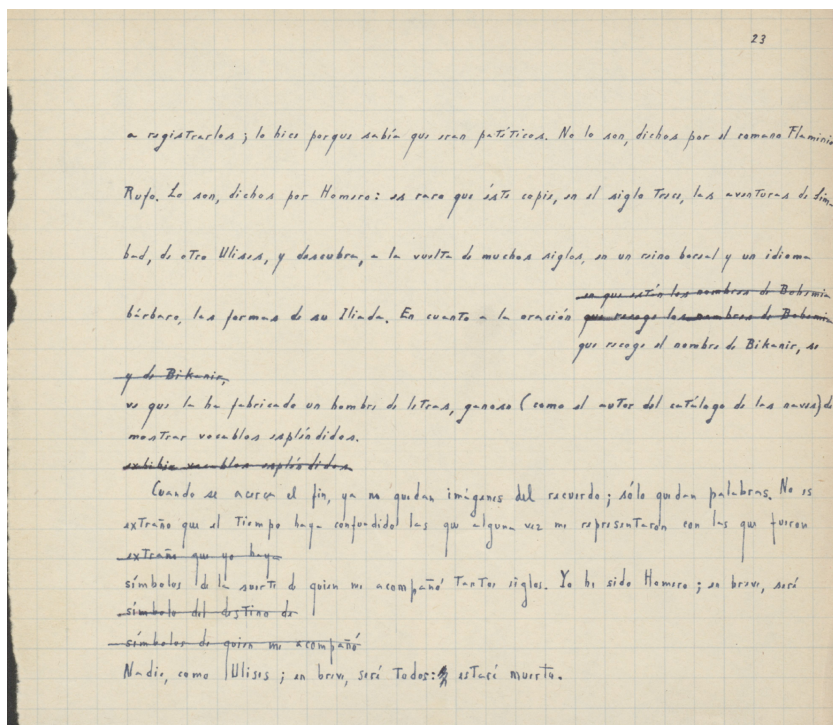 23
a registrarlos; lo hice porque sabía que eran patéticos. No lo son, dichos por el romano Flaminio
Rufo. Lo son, dichos por Homero: es raro que éste copie, en el siglo trece, las aventuras de Sim-
bad, de otro Ulises, y descubra, a la vuelta de muchos siglos, en un reino boreal y un idioma
en que están los nombres de Bohemia
bárbaro, las formas de su Iliada. En cuanto a la oración que recoge los nombres de Bohemia
que recoge el nombre de Bikanir, se
y de Bikanir,
ve que la ha fabricado un hombre de letras, ganoso (como el autor del catálogo de las naves) de
mostrar vocablos espléndidos.
exhibir vocablos espléndidos.
Cuando se acerca el fin, ya no quedan imágenes del recuerdo; sólo quedan palabras. No es
extraño que el tiempo haya confundido las que alguna vez me representaron con las que fueron
extraño que yo hay
símbolos de la suerte de quien me acompañó tantos siglos. Yo he sido Homero; en breve, seré
símbolo del destino de
símbolos de quien me acompañó
Nadie, como Ulises; en breve, seré Todos: estaré muerto.